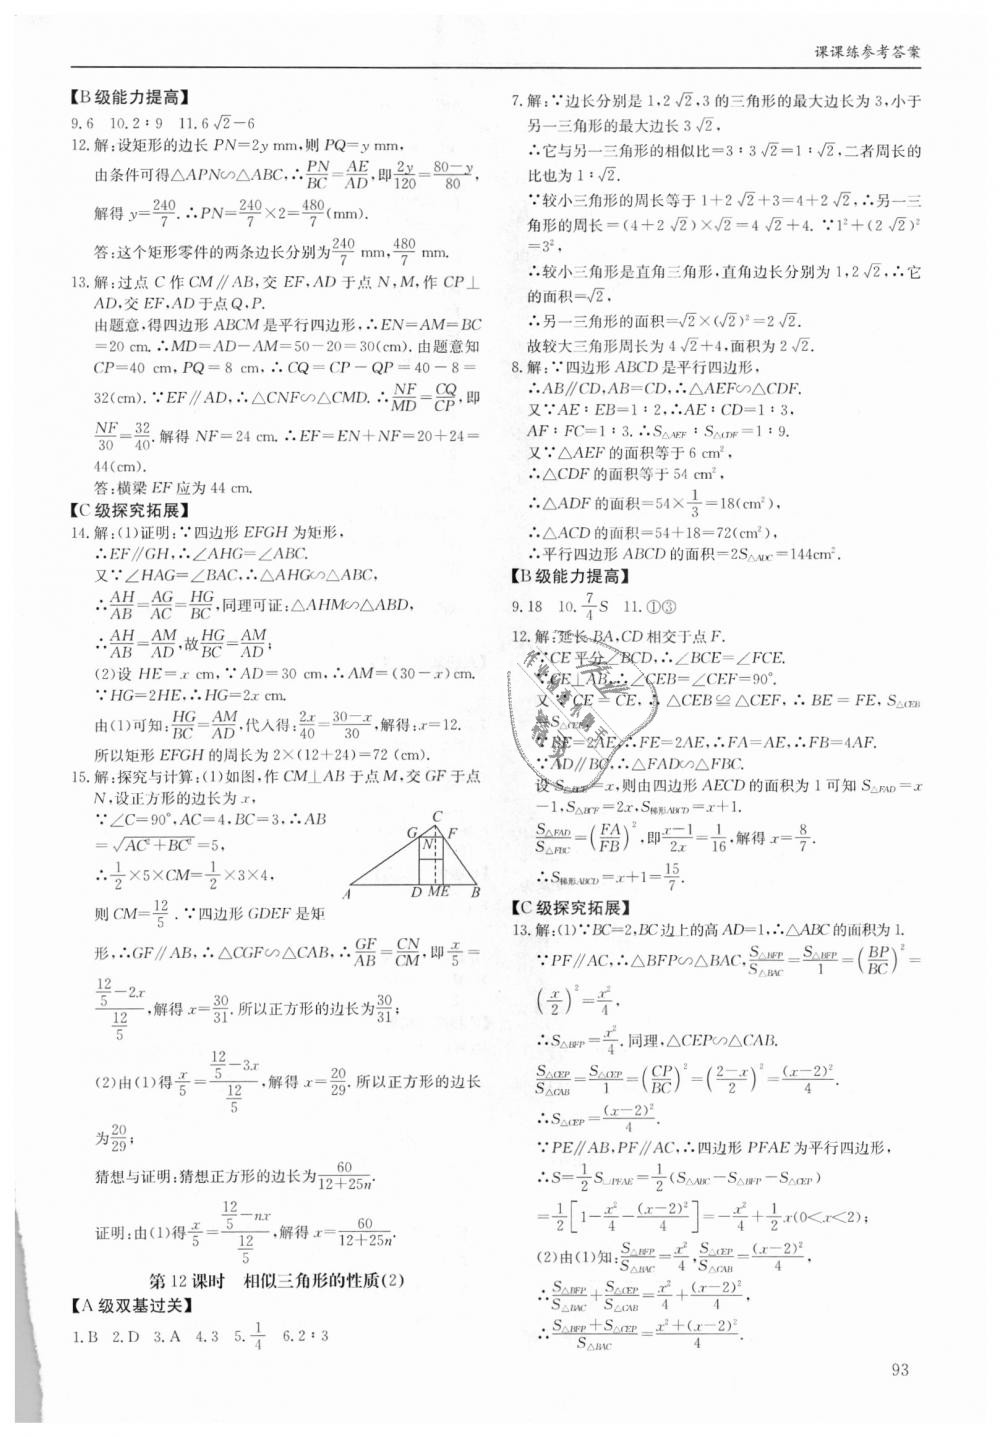 课课练参考答案
【B级能力提高】
9.6 10.2∶9 11.6√2－6
12.解:设矩形的边长 PN=2y mm,则 PQ=y mm,
由条件可得△APN∽△ABC,∴PN/BC=AE/AD,即2y/120=(80－y)/80,
解得 y=240/7.∴PN=240/7×2=480/7(mm).
答:这个矩形零件的两条边长分别为240/7 mm,480/7 mm.
13.解:过点 C 作 CM∥AB,交 EF,AD 于点 N,M,作 CP⊥
AD,交 EF,AD 于点 Q,P.
由题意,得四边形 ABCM 是平行四边形,∴EN=AM=BC
=20 cm.∴MD=AD－AM=50－20=30(cm).由题意知
CP=40 cm,PQ=8 cm,∴CQ=CP－QP=40－8=
32(cm).∵EF∥AD,∴△CNF∽△CMD.∴NF/MD=CQ/CP,即
NF/30=32/40.解得 NF=24 cm.∴EF=EN+NF=20+24=
44(cm).
答:横梁 EF 应为 44 cm.
【C级探究拓展】
14.解:(1)证明:∵四边形 EFGH 为矩形,
∴EF∥GH,∴∠AHG=∠ABC.
又∵∠HAG=∠BAC,∴△AHG∽△ABC,
∴AH/AB=AG/AC=HG/BC,同理可证:△AHM∽△ABD,
∴AH/AB=AM/AD,故HG/BC=AM/AD;
(2)设 HE=x cm,∵AD=30 cm,∴AM=(30－x)cm.
∵HG=2HE,∴HG=2x cm.
由(1)可知:HG/BC=AM/AD,代入得:2x/40=(30－x)/30,解得:x=12.
所以矩形 EFGH 的周长为 2×(12+24)=72 (cm).
15.解:探究与计算:(1)如图,作 CM⊥AB 于点 M,交 GF 于点
N,设正方形的边长为 x,
∵∠C=90°,AC=4,BC=3,∴AB
=√(AC²+BC²)=5,
∴1/2×5×CM=1/2×3×4,
则 CM=12/5.∵四边形 GDEF 是矩
C
G F
N
A D M E B
形,∴GF∥AB,∴△CGF∽△CAB,∴GF/AB=CN/CM,即x/5=
(12/5－2x)/(12/5),解得 x=30/31.所以正方形的边长为30/31;
(2)由(1)得x/5=(12/5－3x)/(12/5),解得 x=20/29.所以正方形的边长
为20/29;
猜想与证明:猜想正方形的边长为60/(12+25n).
证明:由(1)得x/5=(12/5－nx)/(12/5),解得 x=60/(12+25n).
第12课时 相似三角形的性质(2)
【A级双基过关】
1.B 2.D 3.A 4.3 5.1/4 6.2∶3
7.解:∵边长分别是 1,2√2,3 的三角形的最大边长为 3,小于
另一三角形的最大边长 3√2,
∴它与另一三角形的相似比=3∶3√2=1∶√2,二者周长的
比也为 1∶√2.
∵较小三角形的周长等于 1+2√2+3=4+2√2,∴另一三
角形的周长=(4+2√2)×√2=4√2+4.∵1²+(2√2)²
=3²,
∴较小三角形是直角三角形,直角边长分别为 1,2√2,∴它
的面积=√2,
∴另一三角形的面积=√2×(√2)²=2√2.
故较大三角形周长为 4√2+4,面积为 2√2.
8.解:∵四边形 ABCD 是平行四边形,
∴AB∥CD,AB=CD,∴△AEF∽△CDF.
又∵AE∶EB=1∶2,∴AE∶CD=1∶3,
AF∶FC=1∶3.∴S△AEF∶S△CDF=1∶9.
又∵△AEF 的面积等于 6 cm²,
∴△CDF 的面积等于 54 cm²,
∴△ADF 的面积=54×1/3=18(cm²),
∴△ACD 的面积=54+18=72(cm²),
∴平行四边形 ABCD 的面积=2S△ADC=144cm².
【B级能力提高】
9.18 10.7/4S 11.①③
12.解:延长 BA,CD 相交于点 F.
∵CE 平分∠BCD,∴∠BCE=∠FCE.
∵CE⊥AB,∴∠CEB=∠CEF=90°.
又∵CE=CE,∴△CEB≌△CEF,∴BE=FE,S△CEB
=S△CEF.
∵BE=2AE,∴FE=2AE,∴FA=AE,∴FB=4AF.
∵AD∥BC,∴△FAD∽△FBC.
设 S=x,则由四边形 AECD 的面积为 1 可知 S△FAD=x
－1,S△BCF=2x,S梯形ABCD=x+1.
S△FAD/S△FBC=(FA/FB)²,即(x－1)/2x=1/16,解得 x=8/7.
∴S梯形ABCD=x+1=15/7.
【C级探究拓展】
13.解:(1)∵BC=2,BC 边上的高 AD=1,∴△ABC 的面积为 1.
∵PF∥AC,∴△BFP∽△BAC,S△BFP/S△BAC=S△BFP/1=(BP/BC)²=
(x/2)²=x²/4,
∴S△BFP=x²/4.同理,△CEP∽△CAB.
S△CEP/S△CAB=S△CEP/1=(CP/BC)²=((2－x)/2)²=(x－2)²/4.
∴S△CEP=(x－2)²/4.
∵PE∥AB,PF∥AC,∴四边形 PFAE 为平行四边形,
∴S=1/2S▱PFAE=1/2(S△ABC－S△BFP－S△CEP)
=1/2[1－x²/4－(x－2)²/4]=－x²/4+1/2x(0<x<2);
(2)由(1)知:S△BFP/S△BAC=x²/4,S△CEP/S△CAB=(x－2)²/4,
∴S△BFP/S△BAC+S△CEP/S△CAB=x²/4+(x－2)²/4,
∴(S△BFP+S△CEP)/S△BAC=(x²+(x－2)²)/4.
93